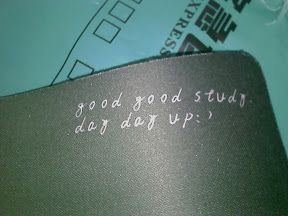 EXPRESS
good good study.
day day up:)